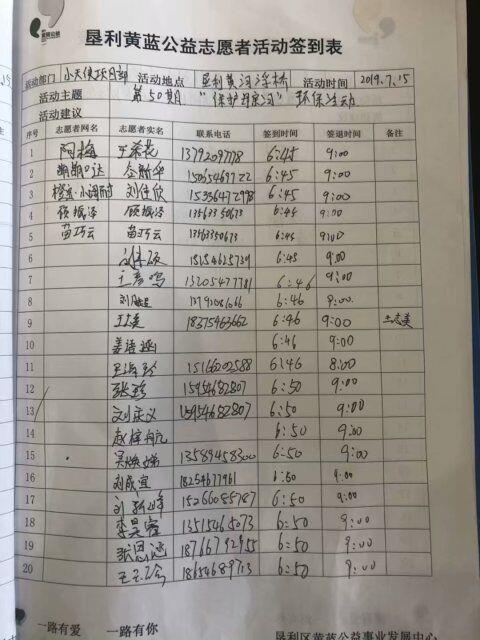 垦利黄蓝公益志愿者活动签到表
活动部门 小天使项目部 活动地点 垦利黄河浮桥 活动时间 2019.7.15
活动主题 第50期 "保护母亲河" 环保活动
活动建议
序号 志愿者网名 志愿者实名 联系电话 签到时间 签退时间 备注
1 阿梅 王荣花 13792097778 6:45 9:00
2 6:45 9:00
3 刘佳欣 15336472978 6:45 9:00
4 顾振泽 顾振泽 13563350673 6:45 9:00
5 苗巧云 苗巧云 13563350673 6:45 9:00
6 18154625739 6:45 9:00
7 王彦鸣 13205477781 6:46 9:00
8 6:46 9:00
9 18375463662 6:46 9:00
10 6:46 9:00
11 15166202588 6:46 8:00
12 张珍 15954682807 6:50 9:00
13 刘庆义 15954682807 6:50 9:00
14 6:50 9:00
15 13589458300 6:50 9:00
16 刘欣宜 18254677961 6:50 9:00
17 15266085787 6:50 9:00
18 李昊睿 13515465073 6:50 9:00
19 18766792955 6:50 9:00
20 18654689713 6:50 9:00
一路有爱 一路有你 垦利区黄蓝公益事业发展中心